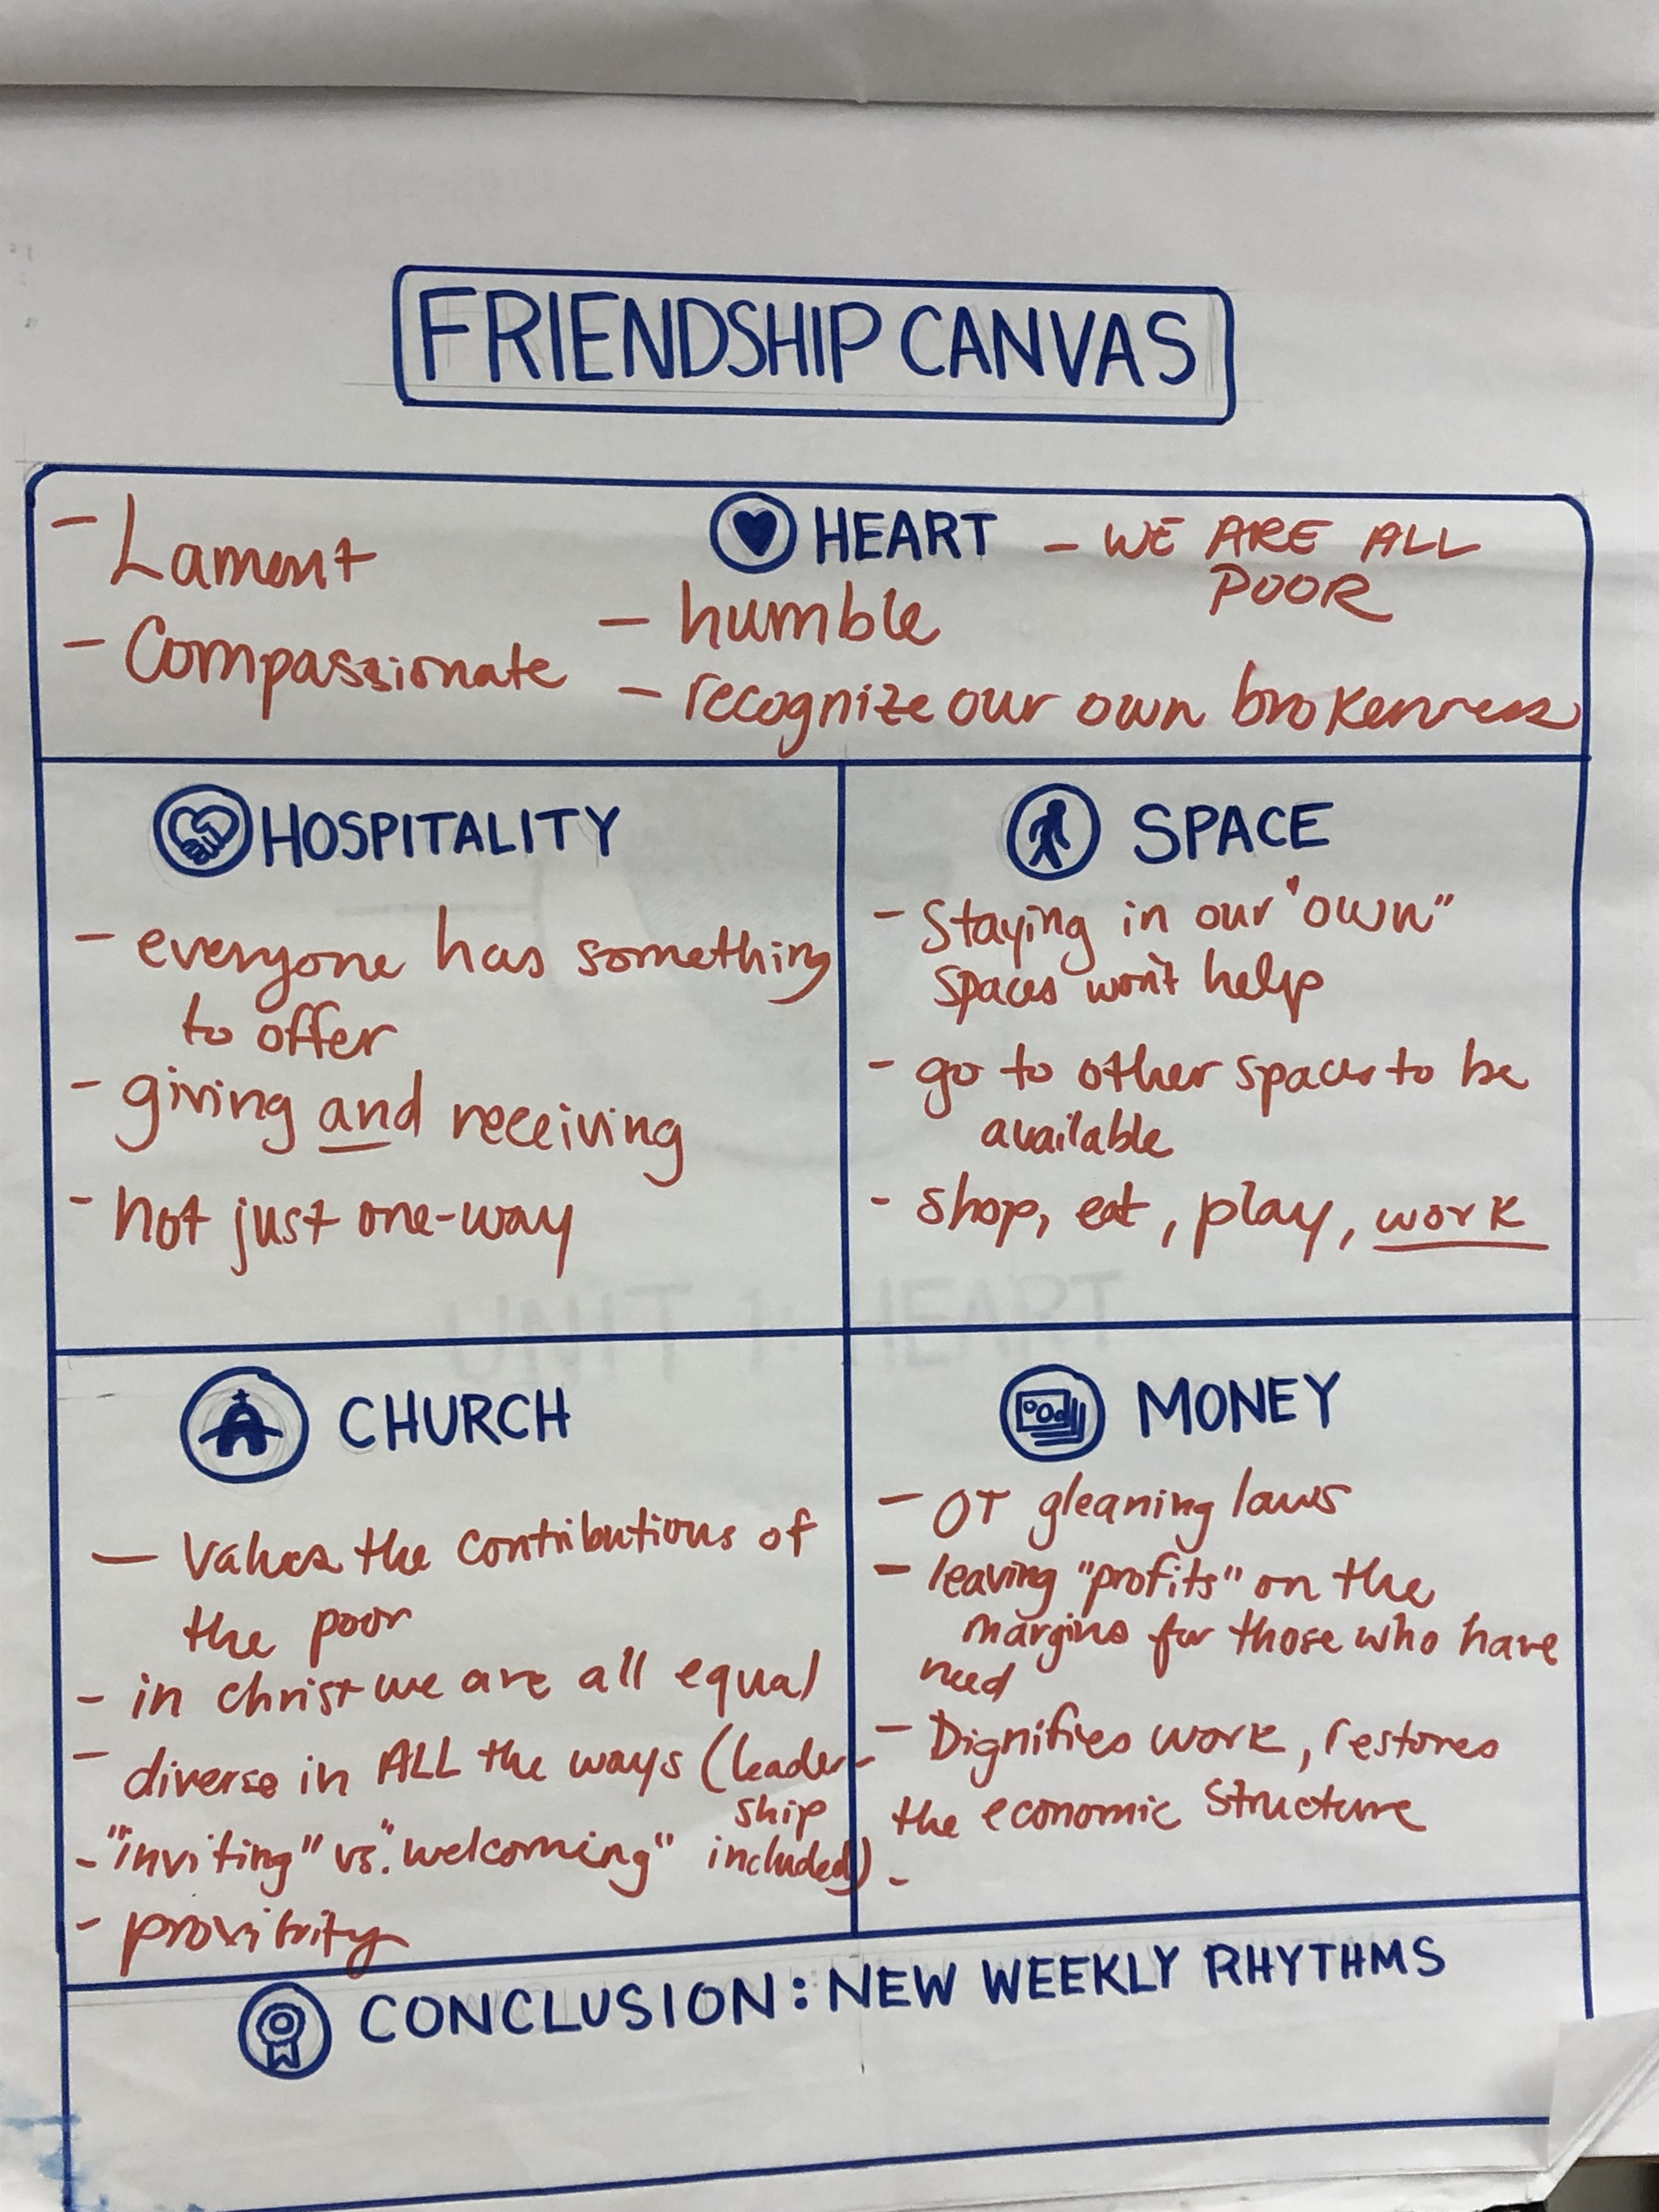 FRIENDSHIP CANVAS
HEART
- Lament
- Compassionate
- humble
- recognize our own brokenness
- WE ARE ALL
POOR
HOSPITALITY
- everyone has something
to offer
- giving and receiving
- not just one-way
SPACE
- Staying in our "own"
spaces won't help
- go to other spaces to be
available
- shop, eat, play, work
UNIT 1: HEART
CHURCH
- Values the contributions of
the poor
- in christ we are all equal
- diverse in ALL the ways (leader-
ship
- "inviting" vs. "welcoming" included)
- proximity
MONEY
- OT gleaning laws
- leaving "profits" on the
margins for those who have
need
- Dignifies work, restores
the economic structure
-
CONCLUSION: NEW WEEKLY RHYTHMS